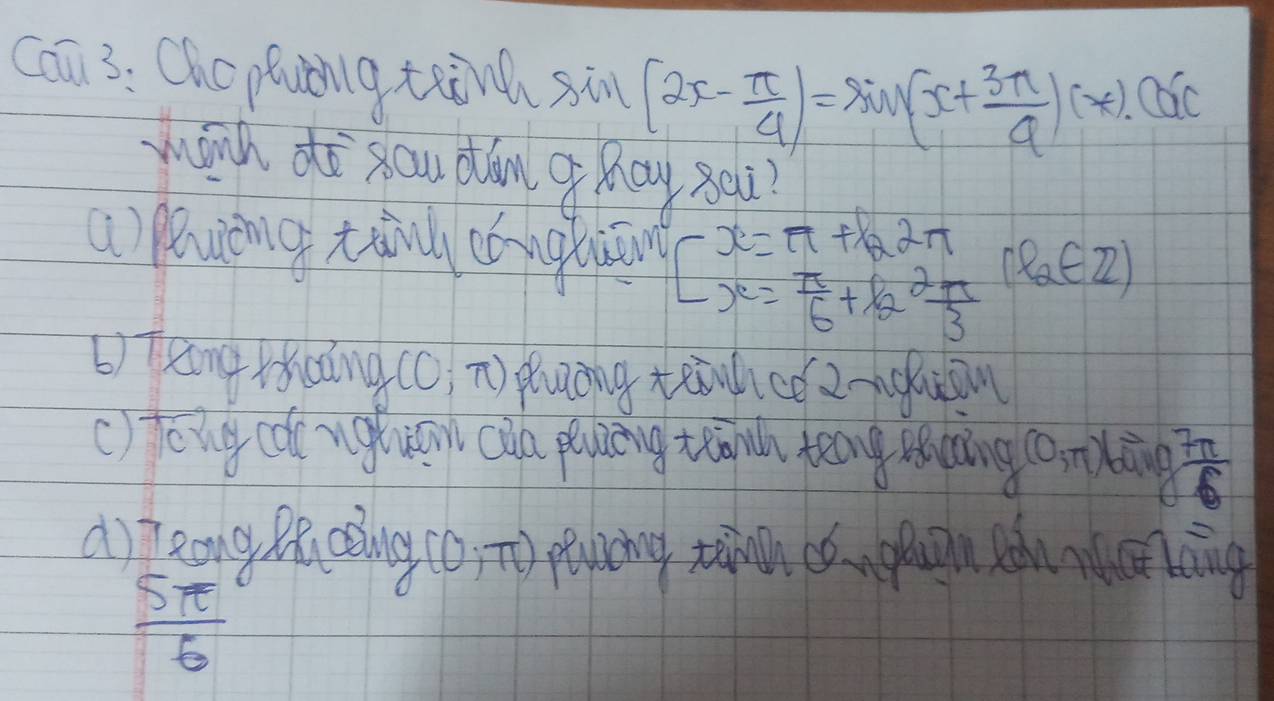 Câu 3: Cho phương trình sin(2x - π/4) = sin(x + 3π/4) (*). Các
mệnh đề sau đúng hay sai?
a) Phương trình có nghiệm [x = π + k2π
x = π/6 + k2π/3 (k ∈ Z)
b) Trong khoảng (0; π) phương trình có 2 nghiệm
c) Tổng các nghiệm của phương trình trong khoảng (0; π) bằng 7π/6
d) Trong khoảng (0; π) phương trình có nghiệm lớn nhất bằng
5π/6